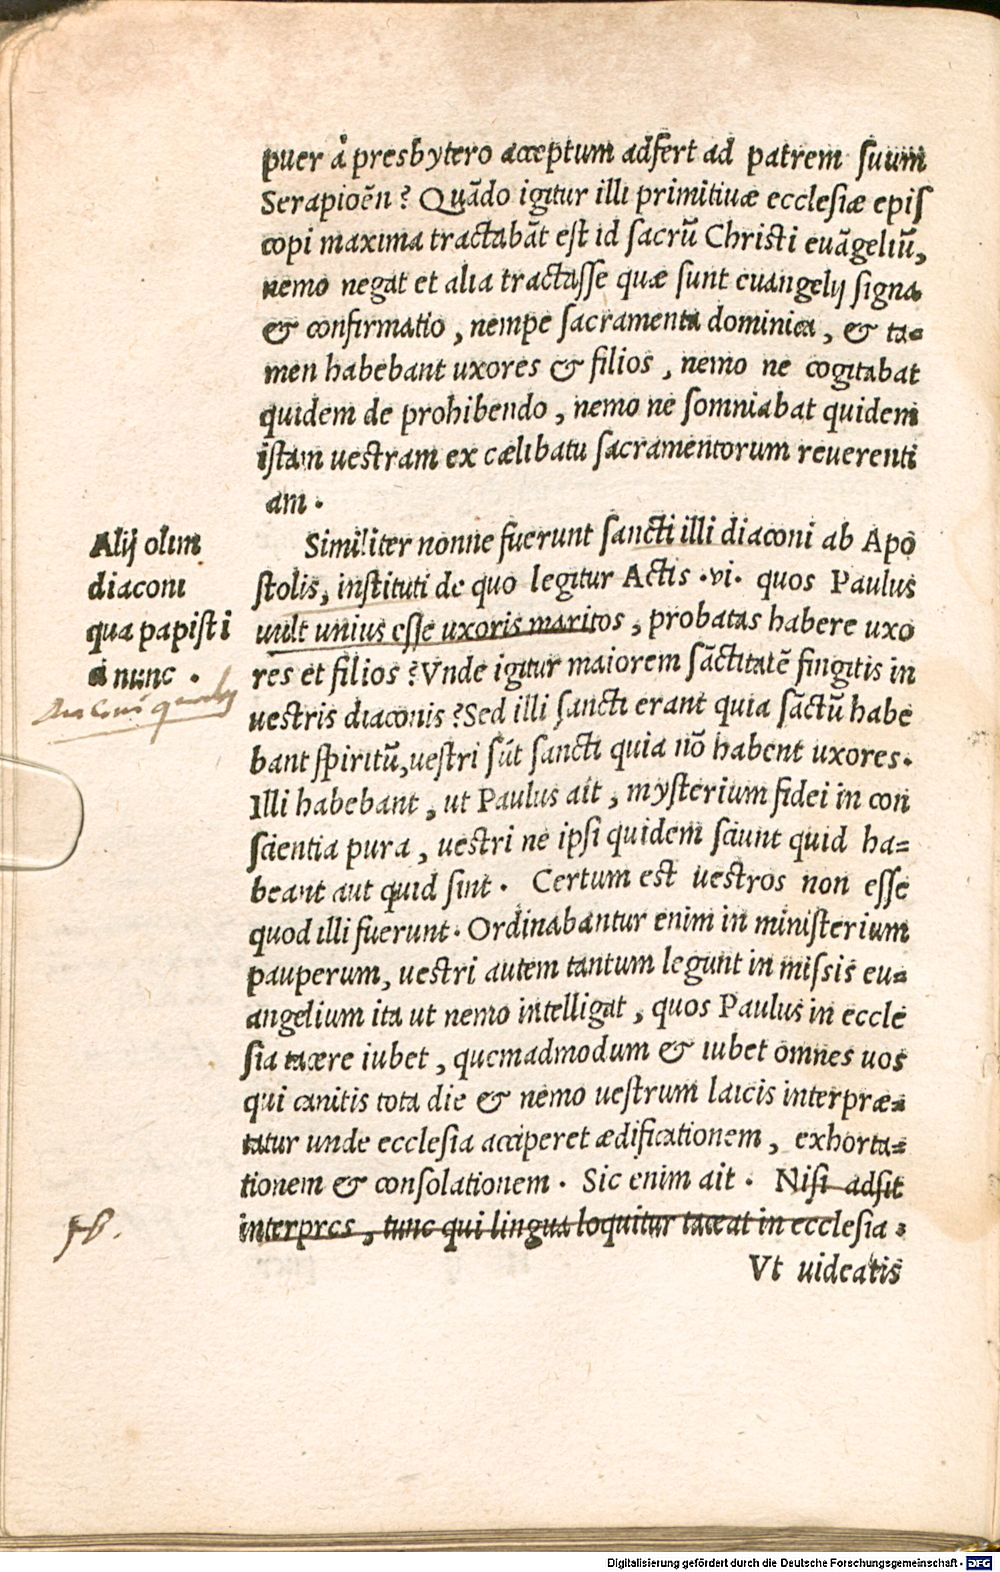 puer à presbytero acceptum adfert ad patrem suum
Serapioēn? Quādo igitur illi primitiuæ ecclesiæ epiſ
copi maxima tractabāt est id ſacrū Christi euāgeliū,
nemo negat et alia tractaſſe quæ ſunt euangelij ſigna
& confirmatio, nempe ſacramenta dominica, & ta=
men habebant uxores & filios, nemo ne cogitabat
quidem de prohibendo, nemo ne ſomniabat quidem
iſtam ueſtram ex cælibatu ſacramentorum reuerenti
am.
Similiter nonne fuerunt ſancti illi diaconi ab Apo
ſtolis, inſtituti de quo legitur Actis .vi. quos Paulus
uult unius eſſe uxoris maritos, probatas habere uxo
res et filios? Vnde igitur maiorem ſāctitatē fingitis in
ueſtris diaconis? Sed illi ſancti erant quia ſāctū habe
bant ſpiritū, ueſtri ſūt ſancti quia nō habent uxores.
Illi habebant, ut Paulus ait, myſterium fidei in con
ſcientia pura, ueſtri ne ipſi quidem ſciunt quid ha=
beant aut quid ſint. Certum eſt ueſtros non eſſe
quod illi fuerunt. Ordinabantur enim in miniſterium
pauperum, ueſtri autem tantum legunt in miſsis eu=
angelium ita ut nemo intelligat, quos Paulus in eccle
ſia tacere iubet, quemadmodum & iubet omnes uos
qui canitis tota die & nemo ueſtrum laicis interpræ=
tatur unde eccleſia acciperet ædificationem, exhorta=
tionem & conſolationem. Sic enim ait. Niſi adſit
interpres, tunc qui lingua loquitur taceat in eccleſia.
Vt uideatis
Alij olim
diaconi
qua papiſti
ci nunc.